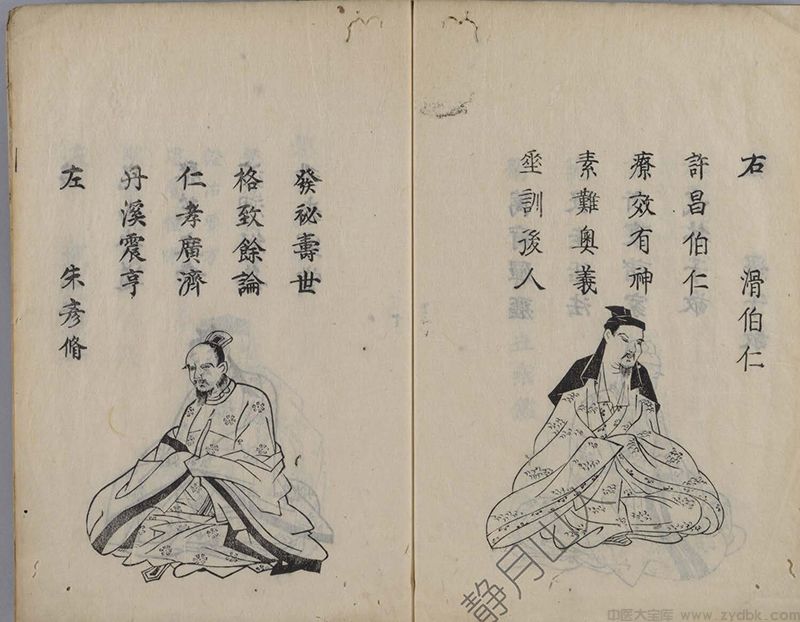 右 滑伯仁
許昌伯仁
療效有神
素難奧義
垂訓後人
左 朱彥脩
丹溪震亨
仁孝廣濟
格致餘論
發祕壽世
静月
中医大宝库 www.zydbk.com